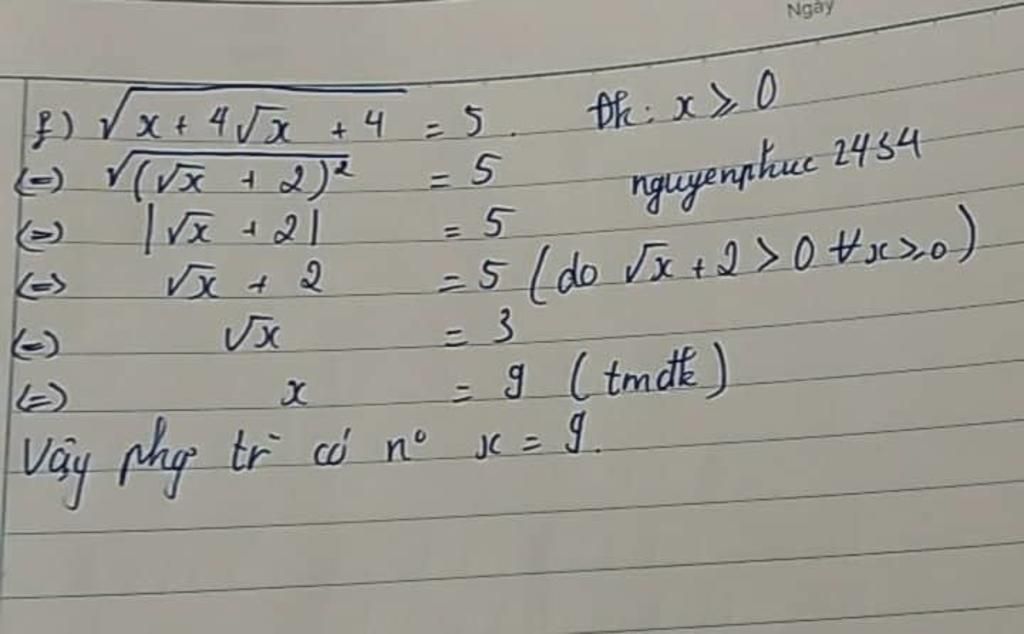 Ngày
f) √(x + 4√x + 4) = 5. Đk: x ⩾ 0
(=) √((√x + 2)²) = 5 nguyenphuc 2434
(=) |√x + 2| = 5
(=) √x + 2 = 5 (do √x + 2 > 0 ∀x ⩾ 0)
(=) √x = 3
(=) x = 9 (tmđk)
Vậy phg tr̀ có n° x = 9.